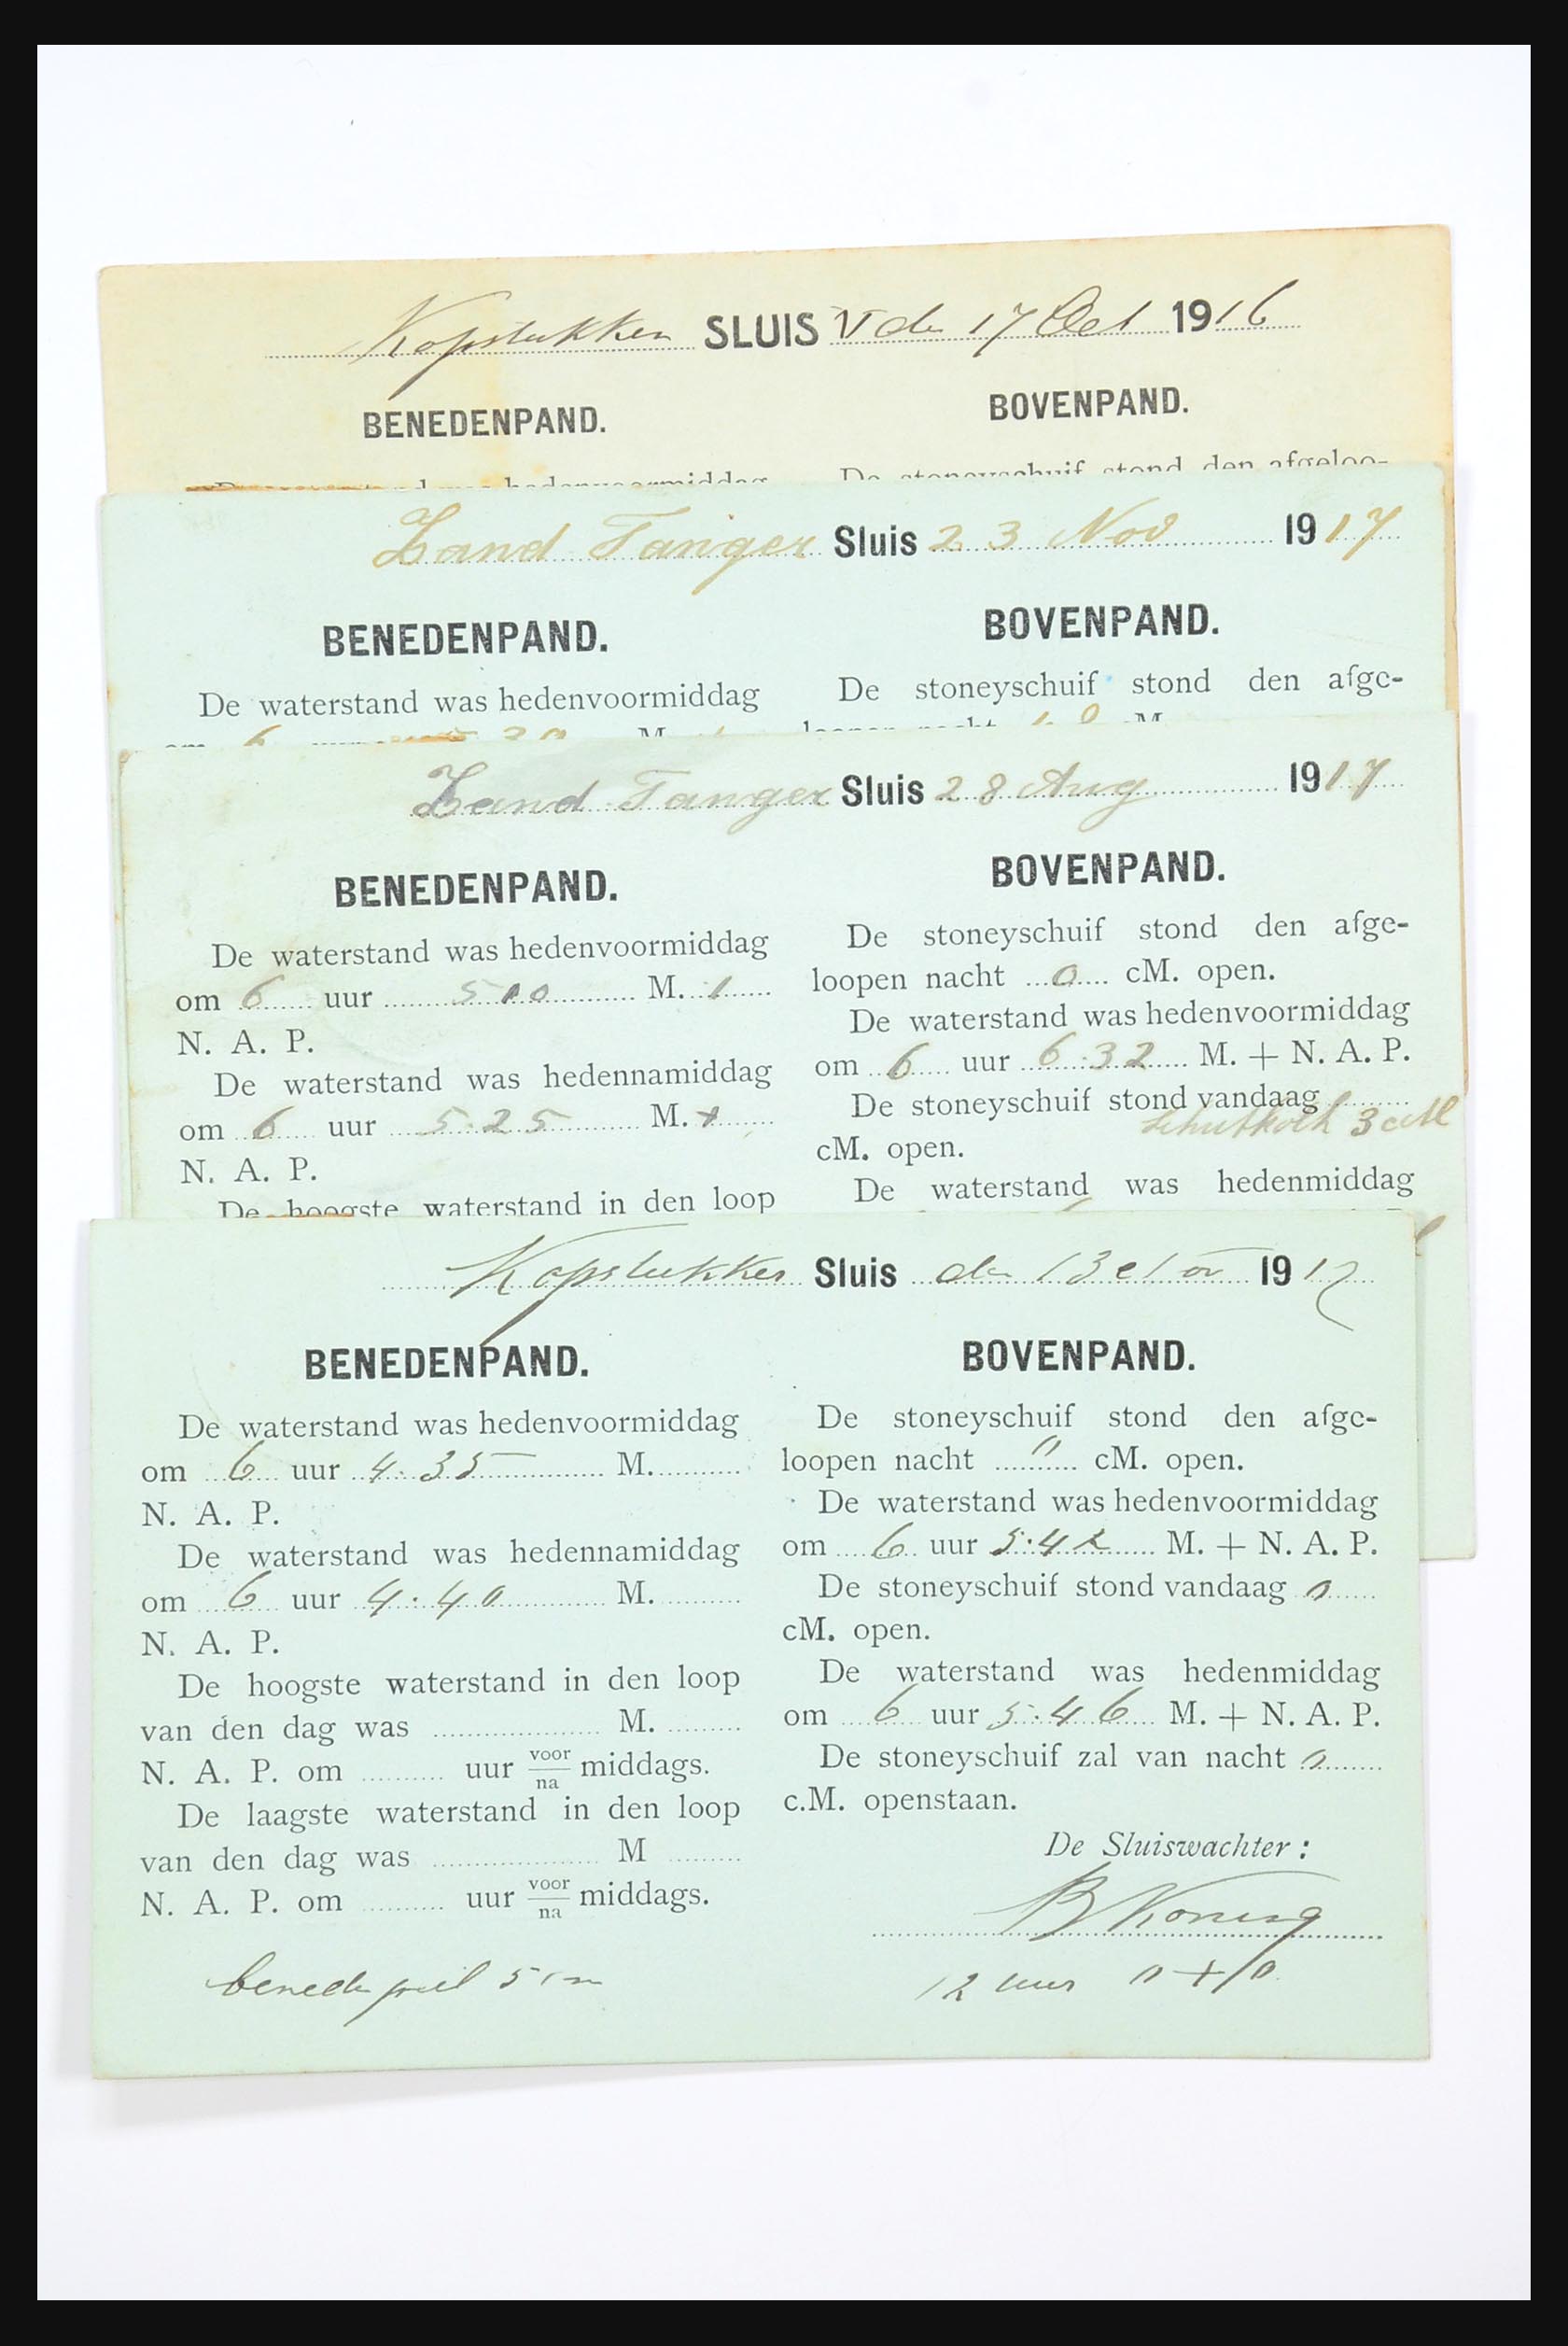 Kopstukken SLUIS V de 17 Oct 1916
BENEDENPAND.
BOVENPAND.
De stoneyschuif stond den afgeloo-
Zand Tanger Sluis 23 Nov 1917
BENEDENPAND.
De waterstand was hedenvoormiddag
BOVENPAND.
De stoneyschuif stond den afge-
Zand Tanger Sluis 28 Aug 1917
BENEDENPAND.
De waterstand was hedenvoormiddag
om 6 uur 5 10 M. 1
N. A. P.
De waterstand was hedennamiddag
om 6 uur 5.25 M. +
N. A. P.
De hoogste waterstand in den loop
BOVENPAND.
De stoneyschuif stond den afge-
loopen nacht 0 cM. open.
De waterstand was hedenvoormiddag
om 6 uur 6.32 M. + N. A. P.
De stoneyschuif stond vandaag
schutkolk 3 cM
cM. open.
De waterstand was hedenmiddag
Kopstukker Sluis de 13 Nov 1917
BENEDENPAND.
De waterstand was hedenvoormiddag
om 6 uur 4.35 M.
N. A. P.
De waterstand was hedennamiddag
om 6 uur 4.40 M.
N. A. P.
De hoogste waterstand in den loop
van den dag was M.
N. A. P. om uur voor/na middags.
De laagste waterstand in den loop
van den dag was M
N. A. P. om uur voor/na middags.
benede peil 5 cm
BOVENPAND.
De stoneyschuif stond den afge-
loopen nacht 0 cM. open.
De waterstand was hedenvoormiddag
om 6 uur 5.42 M. + N. A. P.
De stoneyschuif stond vandaag 0
cM. open.
De waterstand was hedenmiddag
om 6 uur 5.46 M. + N. A. P.
De stoneyschuif zal van nacht 0
c.M. openstaan.
De Sluiswachter:
B Koning
12 uur 0 + 10